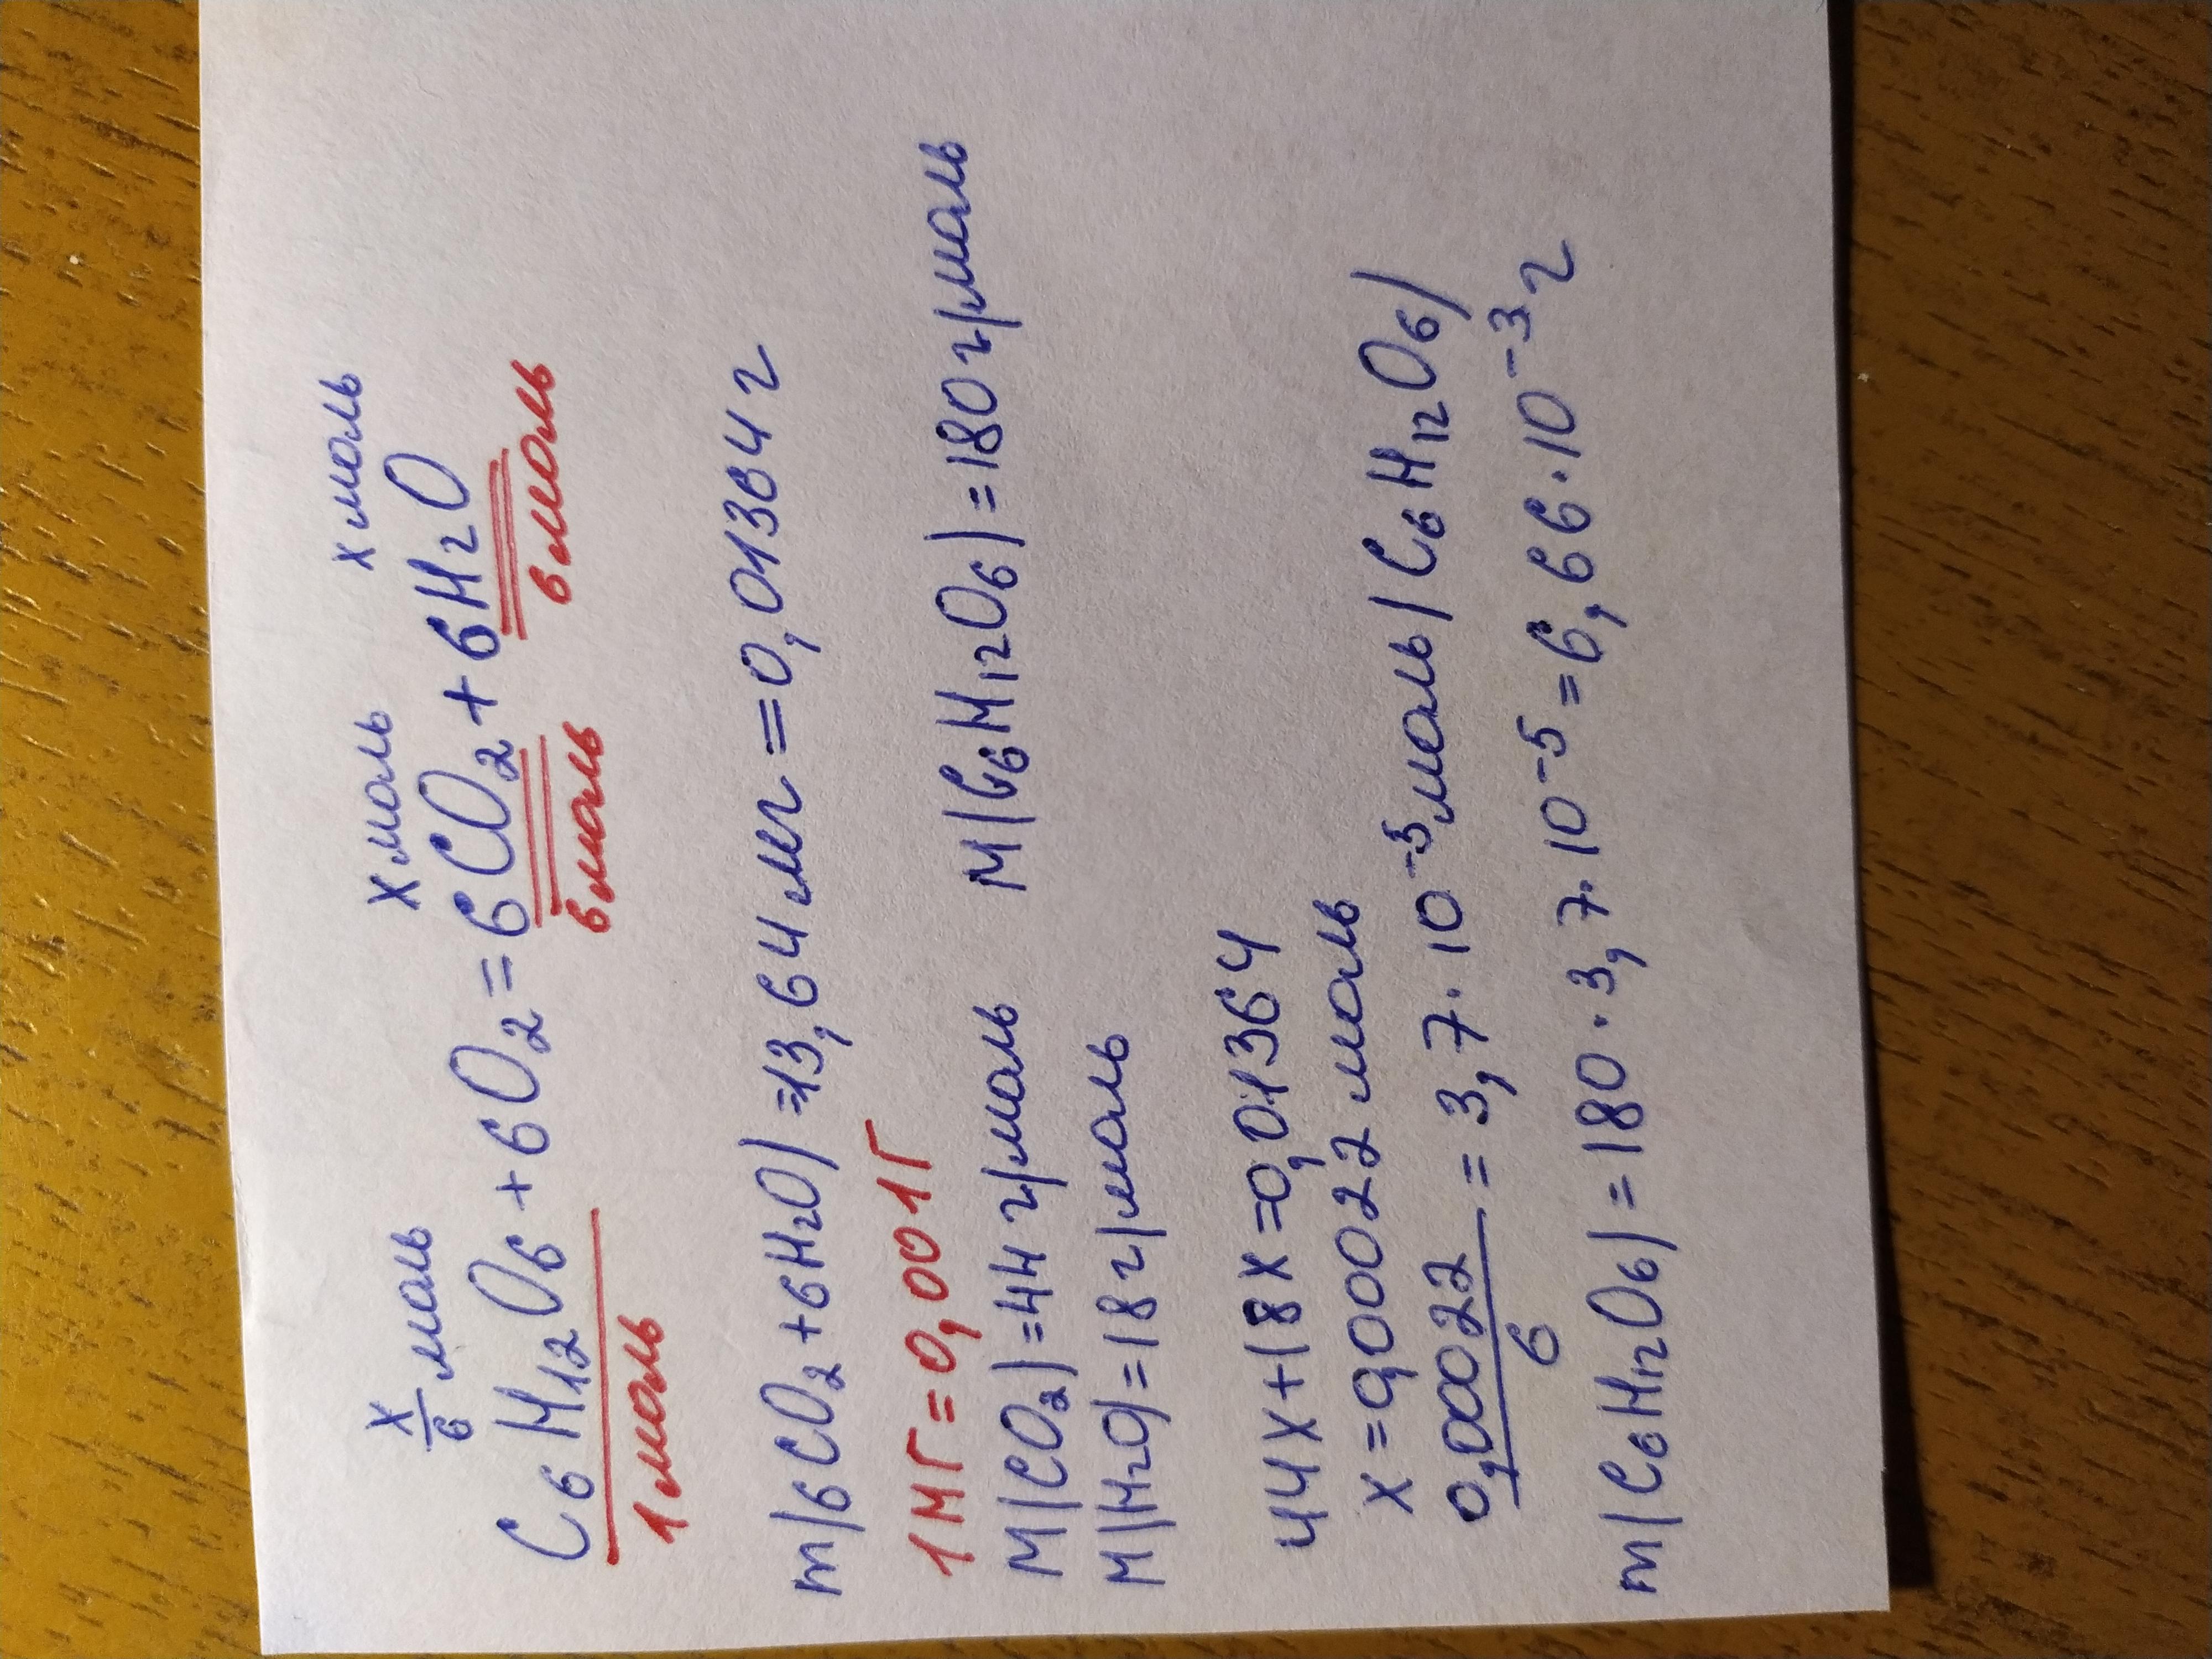 x/6 моль x моль x моль
C₆H₁₂O₆ + 6O₂ = 6CO₂ + 6H₂O
1 моль 6 моль 6 моль
m/6CO₂+6H₂O/=13,64 мг = 0,01364 г
1МГ = 0,001Г
M/CO₂/=44 г/моль M/C₆H₁₂O₆/=180 г/моль
M/H₂O/=18 г/моль
44x+18x=0,01364
x=0,00022 моль
0,00022/6 = 3,7·10⁻⁵ моль/C₆H₁₂O₆/
m/C₆H₁₂O₆/=180·3,7·10⁻⁵=6,66·10⁻³ г